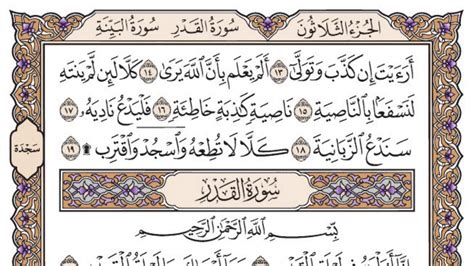 الجزء الثلاثون سورة القدر سورة البينة
أرءيت إن كذب وتولى ١٣ ألم يعلم بأن الله يرى ١٤ كلا لئن لم ينته
لنسفعا بالناصية ١٥ ناصية كاذبة خاطئة ١٦ فليدع ناديه ١٧
سندع الزبانية ١٨ كلا لا تطعه واسجد واقترب ۩ ١٩
سجدة
سورة القدر
بسم الله الرحمن الرحيم